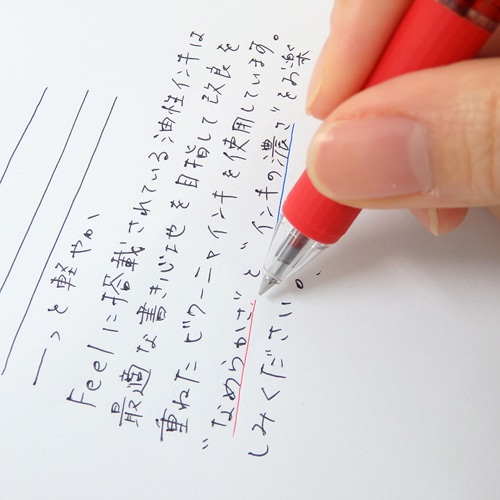 ーっと軽やか
Feelに搭載されている油性インキは
最適な書き心地を目指して改良を
重ねたビクーニャインキを使用しています。
“なめらかさ”と“インキの濃さ”をお楽
しみください。